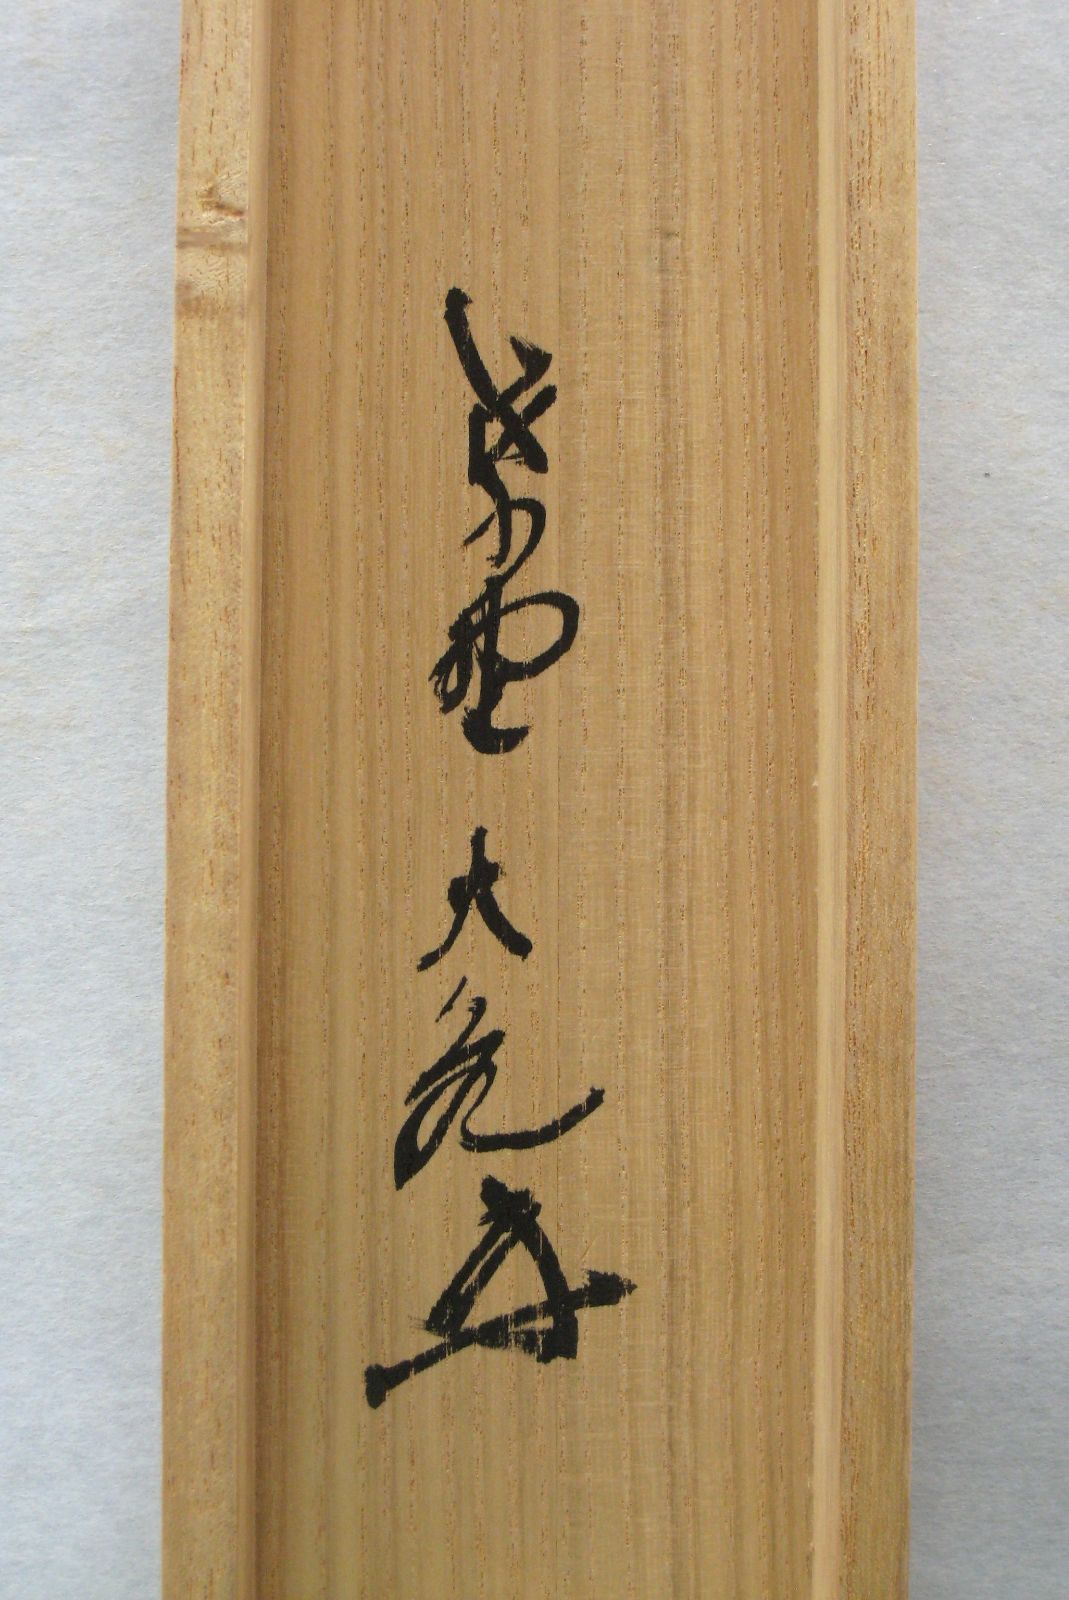 紫野 大亀